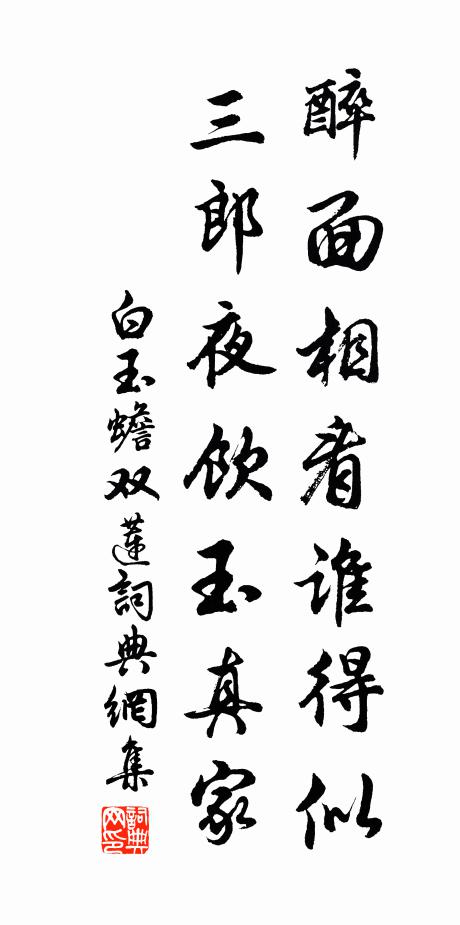 醉面相看誰得似
三郎夜飲玉真家
白玉蟾双蓮詞典網集
詞典网印